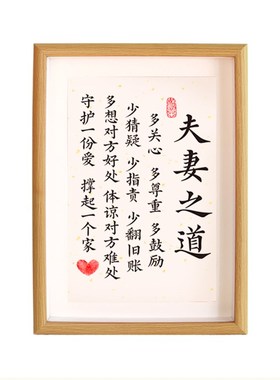 夫妻之道
多关心 多尊重 多鼓励
少猜疑 少指责 少翻旧账
多想对方好处 体谅对方难处
守护一份爱 撑起一个家